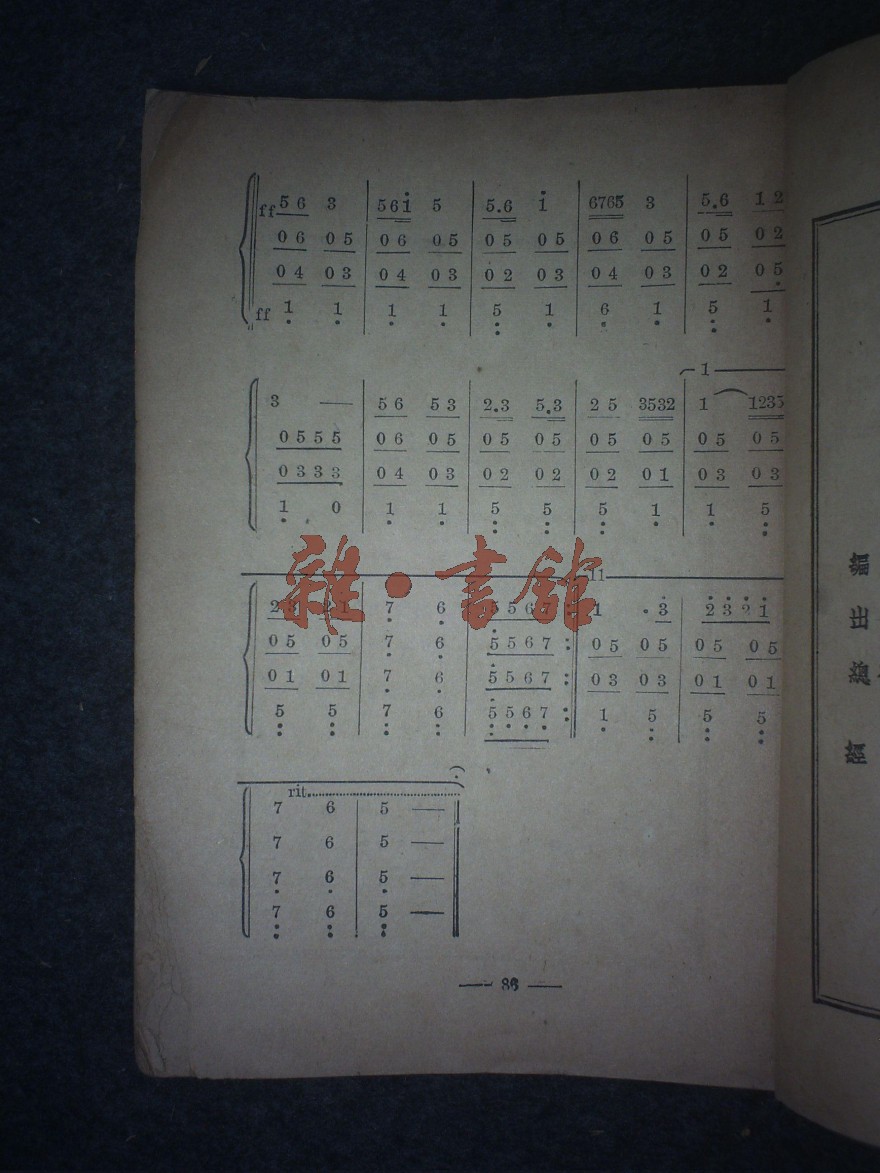 ff 56 3 | 561̇ 5 | 5.6 1̇ | 6765 3 | 5.6 12
06 05 | 06 05 | 05 05 | 06 05 | 05 02
04 03 | 04 03 | 02 03 | 04 03 | 02 05̣
ff 1̣ 1̣ | 1̣ 1̣ | 5̤ 1̣ | 6̣ 1̣ | 5̤ 1̣
1
3 — | 56 53 | 2.3 5.3 | 25 3532 | 1 1235
0555 | 06 05 | 05 05 | 05 05 | 05 05
0333 | 04 03 | 02 02 | 02 01 | 03 03
1̣ 0 | 1̣ 1̣ | 5̤ 5̤ | 5̤ 1̣ | 1̣ 5̤
雜·書館
11
23 21 | 7̣ 6̣ | 5̣567 :‖ 1 ·3̇ | 2̇3̇2̇1̇
05 05 | 7̣ 6̣ | 5̣567 :‖ 05 05 | 05 05
01 01 | 7̣ 6̣ | 5̣567 :‖ 03 03 | 01 01
5̤ 5̤ | 7̤ 6̤ | 5̤5̣6̣7̣ :‖ 1̣ 5̤ | 5̤ 5̤
rit.
7 6 | 5 —
7 6 | 5 —
7̣ 6̣ | 5̣ —
7̤ 6̤ | 5̤ —
— 86 —